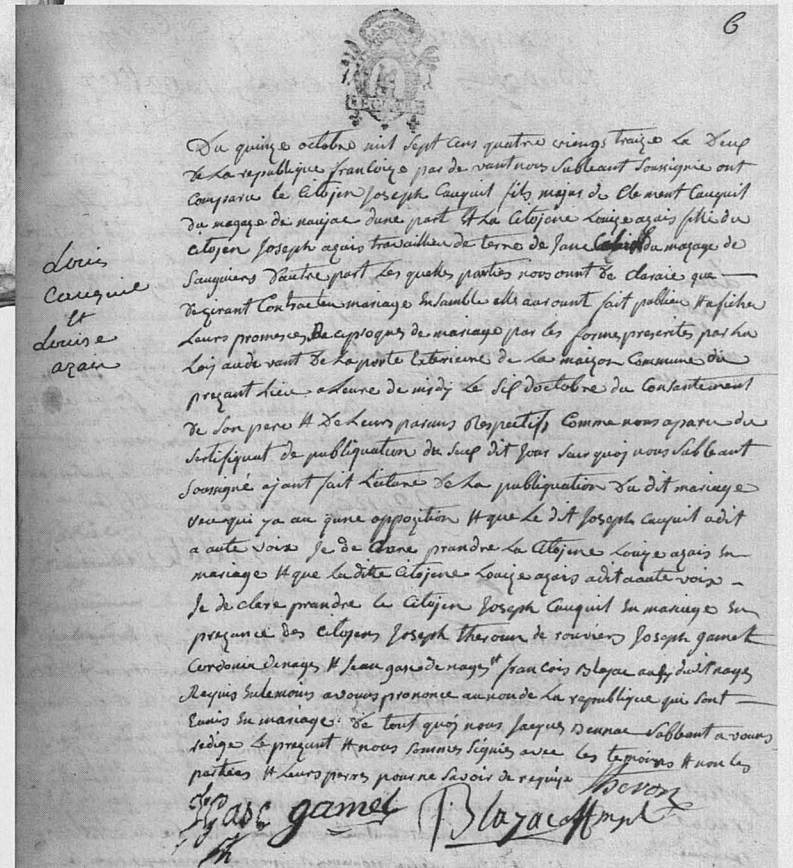 6
Du quinze octobre mil sept cens quatre viengs traize La Deux
De La republique francoize par de vant nous Sableant Soussignie ont
Comparu le Citojen Joseph Cauquil fils majus de Clement Cauquil
du mazaze de naujac dune part et La Citojene Louize azais filie du
Citojen Joseph azais travailheu de terre de Jane du mazage de
Sauquiens dautre part Les quelles parties nous ount de claraie que
Dezirant Contracteu mariage Ensamble elle auroount fait publieu et aficheu
Leurs promeces Reciproques de mariage par les formes prescrites par La
Loij audevant de La porte Exterieure de La maizon Commune du
prezant Lieu a Leure de midij Le Six doctobre du Consantement
de Son pere et De Leurs parans Respectifs Comme nous aparu du
Sertifiquat de publiquation du Sus dit Jour Sur quoij nous Sableant
Soussigné ajant fait Lecture De La publiquation Du dit mariage
veu qui ya au qune oppozition et que Le dit Joseph Cauquil a dit
a aute voix Je de clare prandre La Citojene Louize azais En
mariage et que La ditte Citojene Louize azais a dit a aute voix
Je de clare prandre le Citojen Joseph Cauquil En mariage En
prezance des Citojens Joseph theron de rouviere Joseph gamet
Cordonie de nages et Jean gasc de nages et francois Blazac du dit nages
Requis En temoins avouns prononce au nom de La republique qui sont
Eunis En mariage De tout quoij nous Jacques Sableant a vouns
redige Le prezant et nous Sommes Signies avec les temoins et non les
partiees et Leurs perres pour ne Savoir de requize
Theron
Gasc gamet Blazac
Louis
Cauquil
Et
Louise
azais